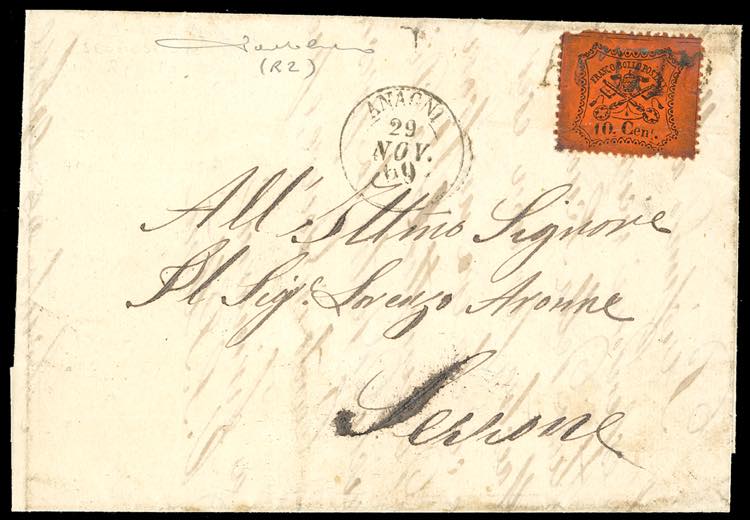 (R2)
ANAGNI
29
NOV.
69
FRANCO BOLLO POSTALE
10. Cent.
All' Ittmo Signore
Il Sigr. Lorenzo Aronne